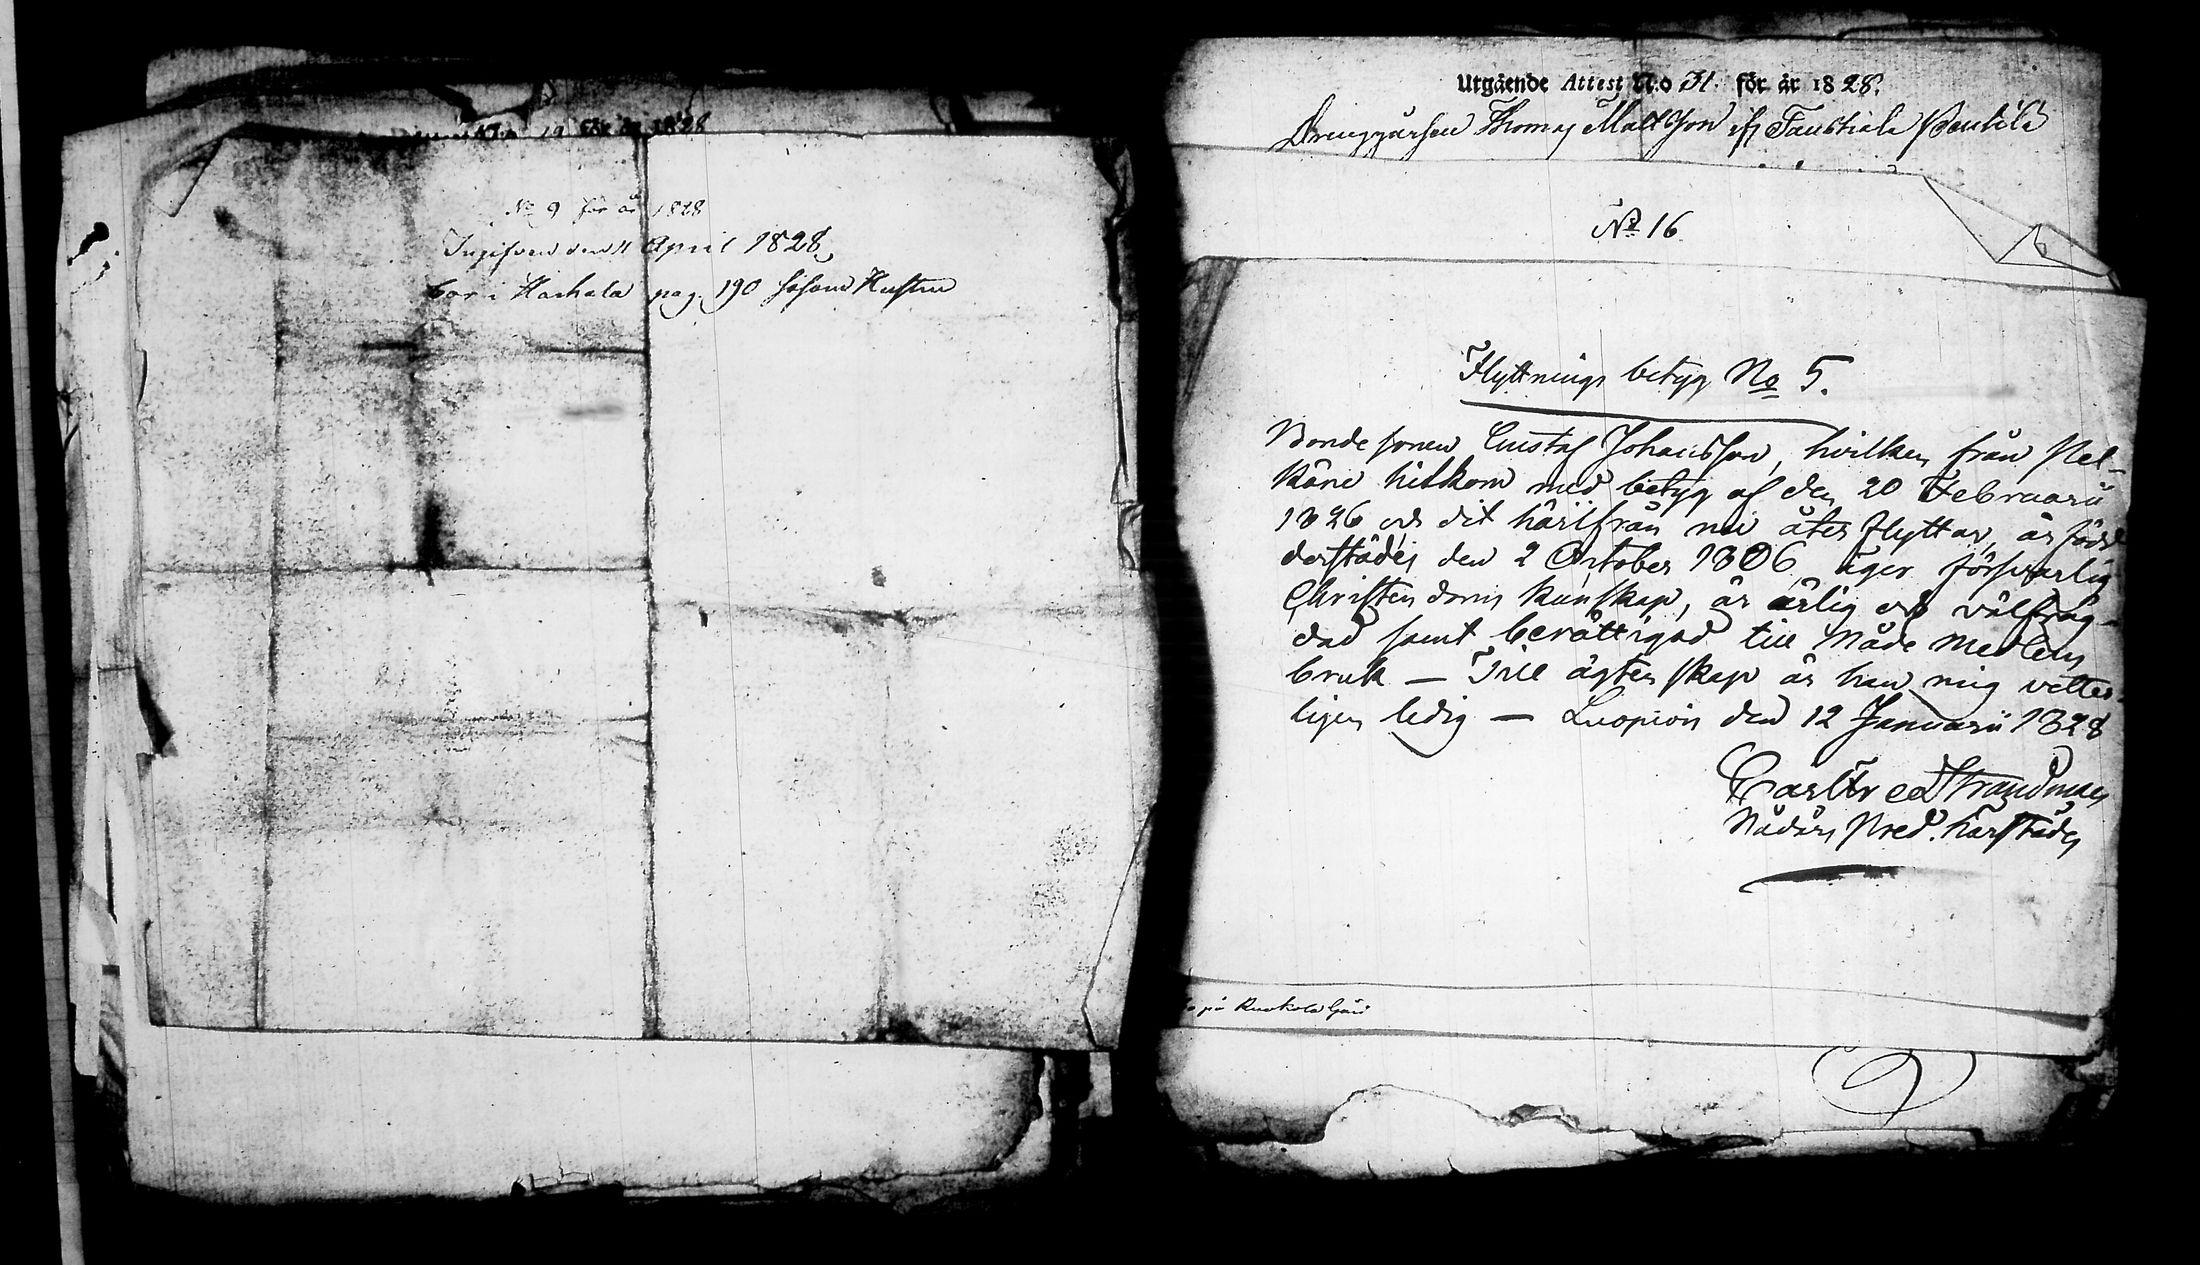 för år 1828
No 9 för år 1828
Ingifven den 11 April 1828
bor i Haihala pag. 190 såsom
Utgående Attest N:o 31. för år 1828.
Drenggåssen Thomas Mattsson ifr Taustiala Penkilä
No 16
Flyttnings betyg No 5.
Bonde sonen Gustaf Johansson, hvilken från Pel-
käne hitkom med betyg af den 20 Februarii
1826 och dit härifrån nu åter flyttar, är född
derstädes den 2 October 1806, äger försvarlig
Christendoms kunskap, är ärlig och välfräg-
dad samt berättigad till Nåde medlens
bruk — Till ägtenskap är han mig vetter-
ligen ledig — Luopiois den 12 Januarii 1828
Carl Fred Strandman
Nådårs Pred. härstädes
på Ruokola Gård